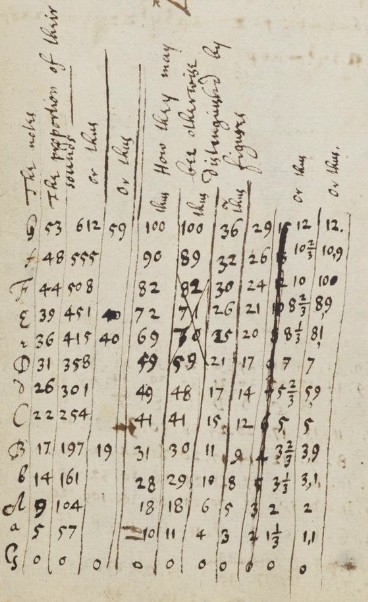 The notes
The proportion of their
sounds
or thus
Or thus
thus
How they may
bee otherwise
thus
distinguished by
thus
figures
Or thus
Or thus.
G 53 612 59 100 100 36 29 12 12.
48 555 90 89 32 26 10⅔ 10,9
F 44 508 82 82 30 24 10 100
E 39 451 72 71 26 21 8⅔ 8,9
e 36 415 40 69 70 25 20 8 8⅓ 8,1
D 31 358 59 59 21 17 7 7
d 26 301 49 48 17 14 5⅔ 5,9
C 22 254 41 41 15 12 5 5
B 17 197 19 31 30 11 9 4 3⅔ 3,9
b 14 161 28 29 10 8 3⅓ 3,1
A 9 104 18 18 6 5 3 2 2
a 5 57 10 11 4 3 2 1⅓ 1,1
G 0 0 0 0 0 0 0 0 0 0